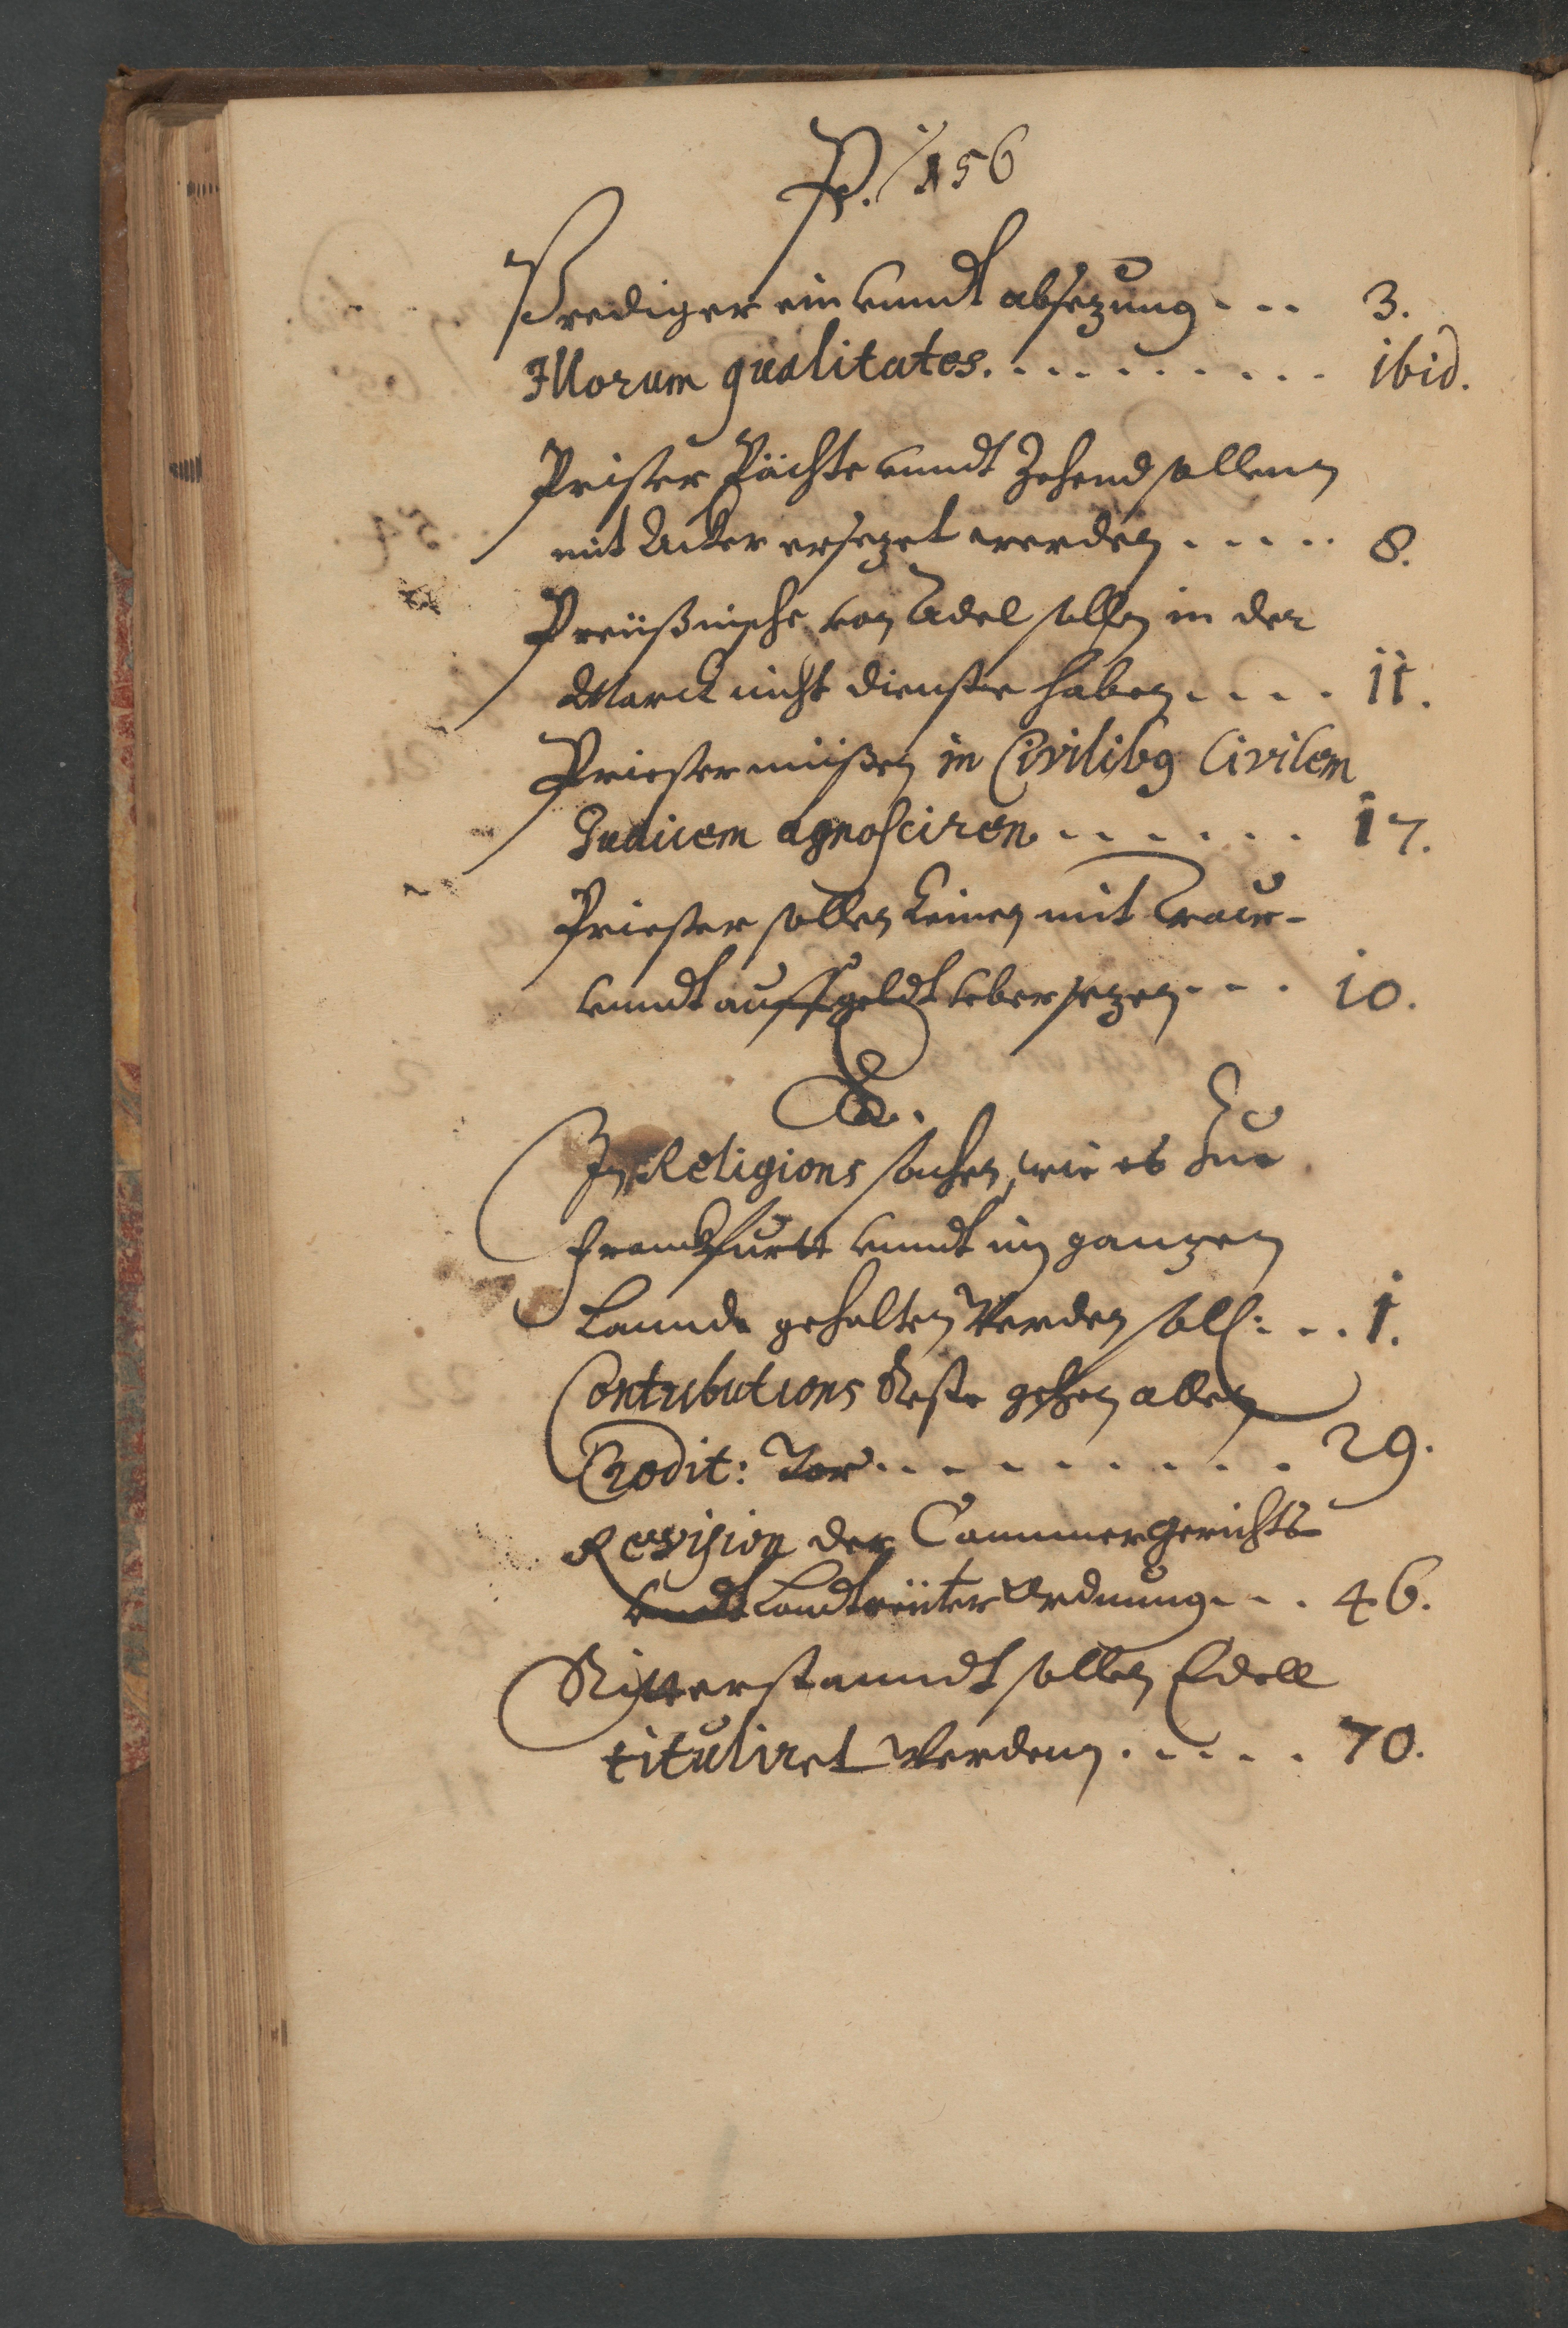 P. 156
Prediger ein vnndt absezung . . . 3.
Illorum qualitates. . . . . . . . . . ibid.
Prister Pächte vnndt Zehend sollenn
mit Acker ersezet werden . . . . . 8.
Preüßnische von Adel sollen in der
Marck nicht dienste haben . . . . 11.
Priester müißen in Civilibg Civilem
Judicem agnosciren . . . . . . 17.
Priester sollen keinen mit Trauw-
vnndt auffgeldt vbersezen . . . 10.
R.
In Religions sachen, wie es Zue
Franckfurtt vnndt im ganzen
Lannde gehalten Werden soll: . . . 1.
Contributions Reste gehen allen
Credit: Vor . . . . . . . . . 29.
Revision der Cammergerichts
vndt Landtreüter Ordnung . . . 46.
Ritterstanndt sollen Edell
tituliret Werdenn . . . . . 70.